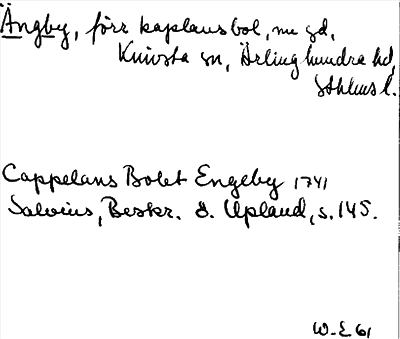 Ängby, förr kaplansbol, nu gd,
Knivsta sn, Ärlinghundra hd,
Sthlms l.
Cappelans Bolet Engeby 1741
Salvius, Beskr. ö. Upland, s. 145.
W-E 61